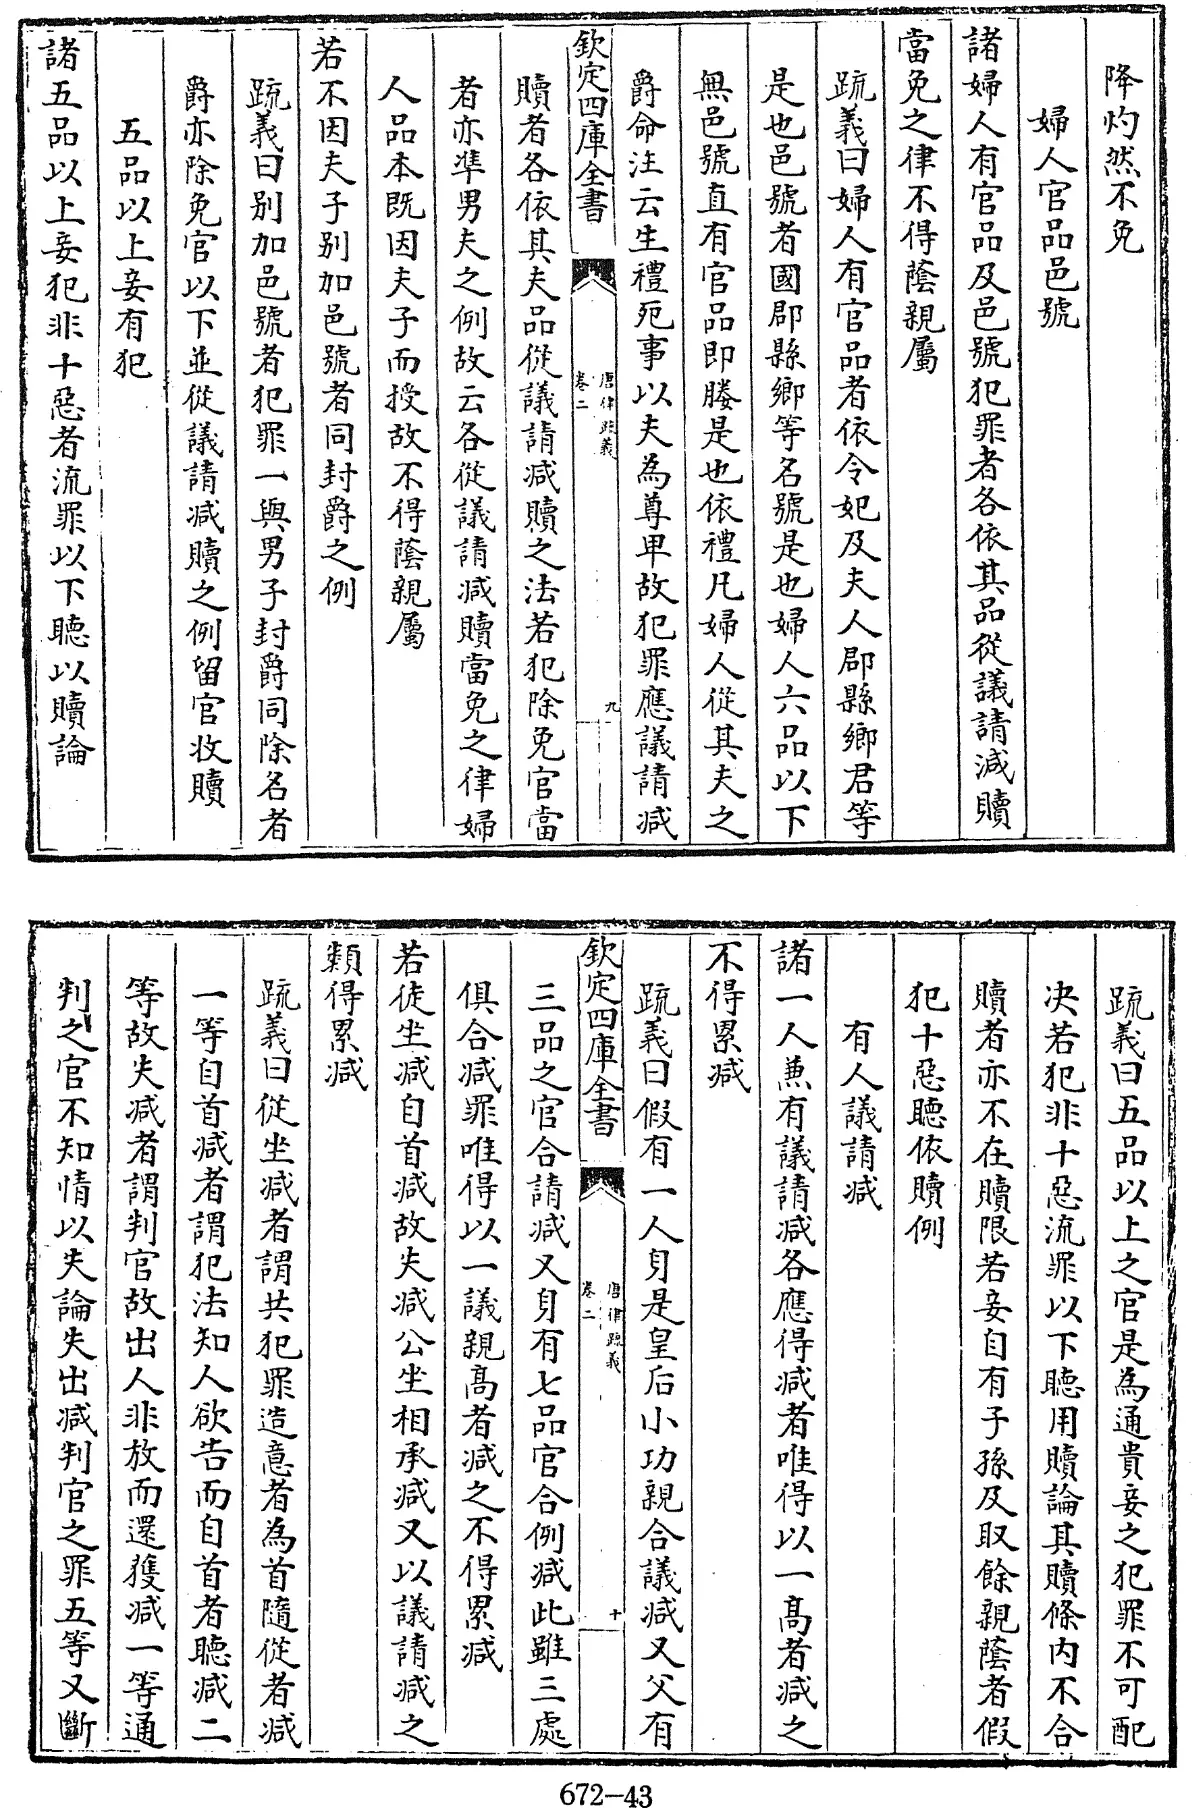 降灼然不免
婦人官品邑號
諸婦人有官品及邑號犯罪者各依其品從議請減贖
當免之律不得蔭親屬
疏義曰婦人有官品者依令妃及夫人郡縣鄉君等
是也邑號者國郡縣鄉等名號是也婦人六品以下
無邑號直有官品即媵是也依禮凡婦人從其夫之
爵命注云生禮死事以夫為尊卑故犯罪應議請减
欽定四庫全書
唐律疏義
卷二
九
贖者各依其夫品從議請减贖之法若犯除免官當
者亦準男夫之例故云各從議請减贖當免之律婦
人品本既因夫子而授故不得蔭親屬
若不因夫子别加邑號者同封爵之例
疏義曰别加邑號者犯罪一與男子封爵同除名者
爵亦除免官以下並從議請减贖之例留官收贖
五品以上妾有犯
諸五品以上妾犯非十惡者流罪以下聽以贖論
疏義曰五品以上之官是為通貴妾之犯罪不可配
决若犯非十惡流罪以下聽用贖論其贖條内不合
贖者亦不在贖限若妾自有子孫及取餘親蔭者假
犯十惡聽依贖例
有人議請减
諸一人兼有議請减各應得减者唯得以一高者减之
不得累减
疏義曰假有一人身是皇后小功親合議减又父有
欽定四庫全書
唐律疏義
卷二
十
三品之官合請减又身有七品官合例减此雖三處
俱合减罪唯得以一議親高者减之不得累减
若從坐减自首减故失减公坐相承减又以議請减之
類得累减
疏義曰從坐减者謂共犯罪造意者為首隨從者减
一等自首减者謂犯法知人欲告而自首者聽减二
等故失减者謂判官故出人非放而還獲减一等通
判之官不知情以失論失出减判官之罪五等又斷
672-43